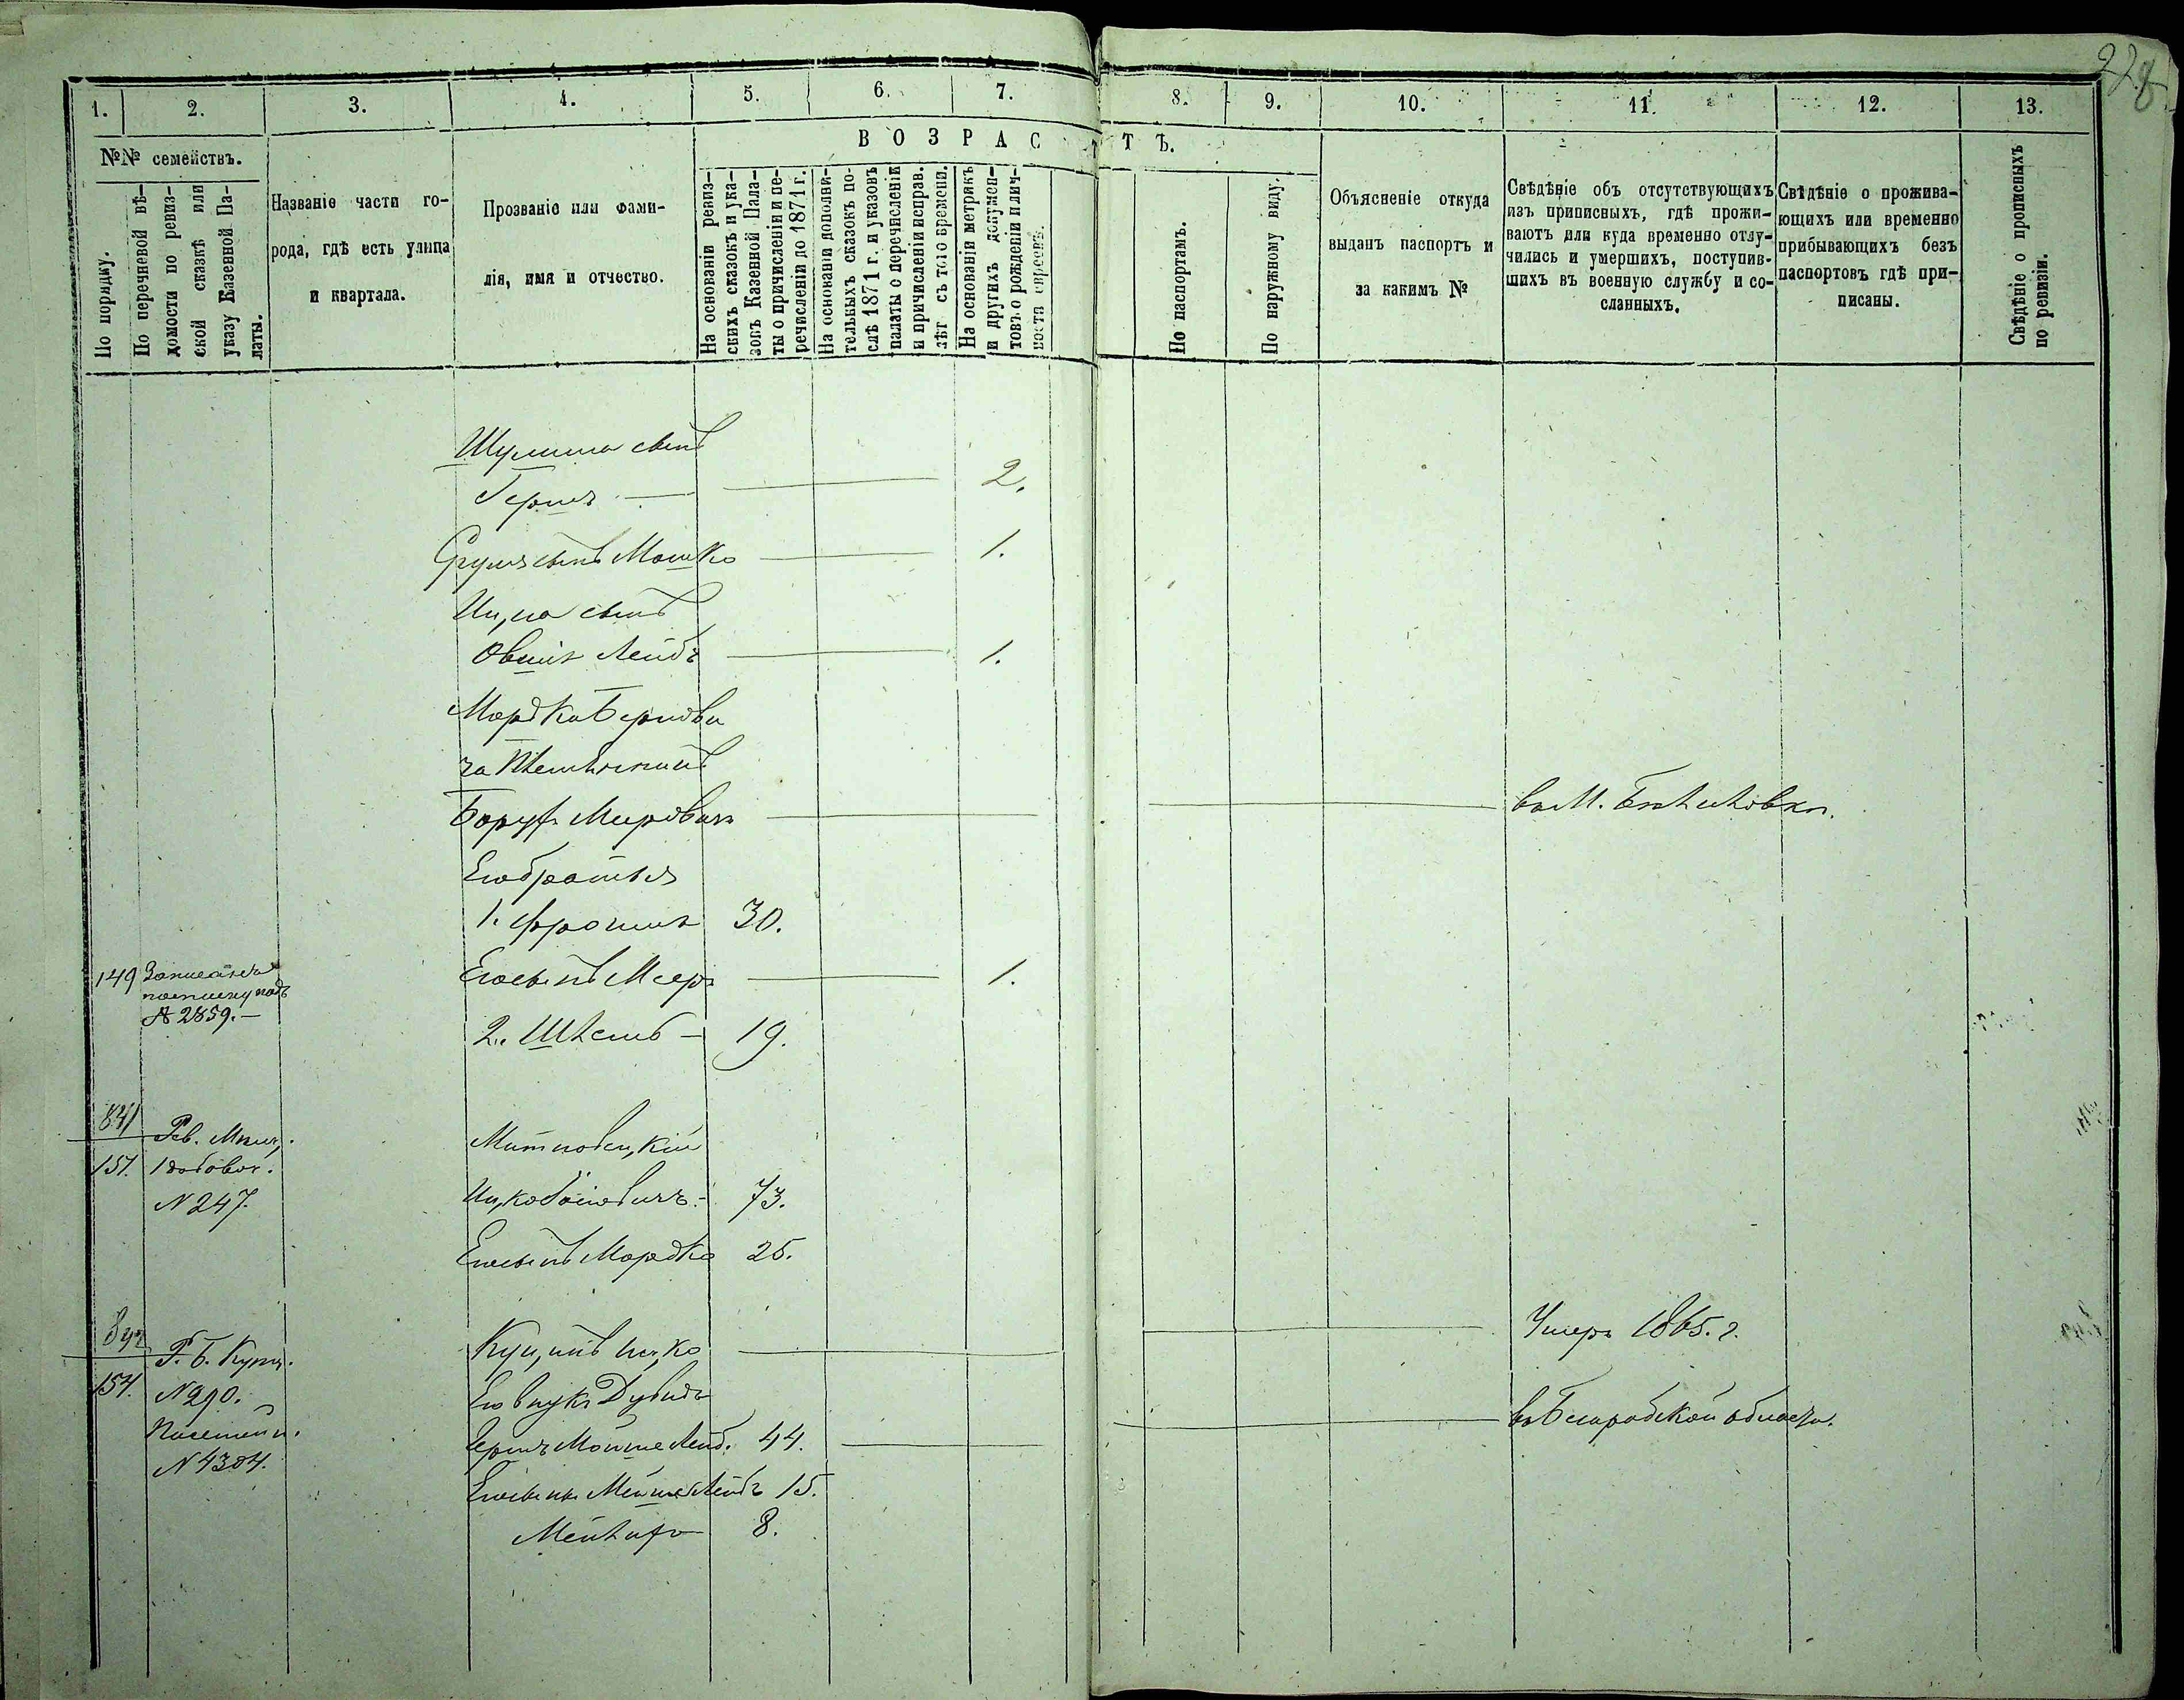 228
1. 2. 3. 4. 5. 6. 7. 8. 9. 10. 11. 12. 13.
№№ семействъ.
По порядку.
По перечневой вѣ-
домости по ревиз-
ской сказкѣ или
указу Казенной Па-
латы.
Названіе части го-
рода, гдѣ есть улица
и квартала.
Прозваніе или фами-
лія, имя и отчество.
ВОЗРАСТЪ.
На основаніи ревиз-
скихъ сказокъ и ука-
зовъ Казенной Пала-
ты о причисленіи и пе-
речисленіи до 1871 г.
На основаніи дополни-
тельныхъ сказокъ по-
слѣ 1871 г. и указовъ
палаты о перечисленіи
и причисленіи исправ.
лѣт съ того времени.
На основаніи метрикъ
и другихъ докумен-
товъ о рожденіи и лич-
ности евреевъ.
По паспортамъ.
По наружному виду.
Объясненіе откуда
выданъ паспортъ и
за какимъ №
Свѣдѣніе объ отсутствующихъ
изъ приписныхъ, гдѣ прожи-
ваютъ или куда временно отлу-
чились и умершихъ, поступив-
шихъ въ военную службу и со-
сланныхъ.
Свѣдѣніе о прожива-
ющихъ или временно
прибывающихъ безъ
паспортовъ гдѣ при-
писаны.
Свѣдѣніе о прописныхъ
по ревизіи.
Шулима сынъ
Гершъ — 2.
Сруля сынъ Мошко 1.
Ицка сынъ
Овшія Лейбъ 1.
Мордка Беркови
ча племянникъ
Борухъ Мировичъ
Его братья
1. Фроимъ 30.
149 Записанъ
подъ
№ 2859. —
Его сынъ Меер 1.
2. Шлема — 19.
841
151. Рев. Мѣщ.
1 добовоч.
N 247.
Митновецкій
Ицко 73.
Его сынъ Мордко 25.
842
154. Р. б. Купц.
N 290.
N 4304.
Куцынъ Ицко Умеръ 1865. г.
Его внукъ Дувидъ
Гершъ Мойше Лейб. 44. въ Бесарабской области.
Его сынъ Мойше Лейбъ 15.
8.